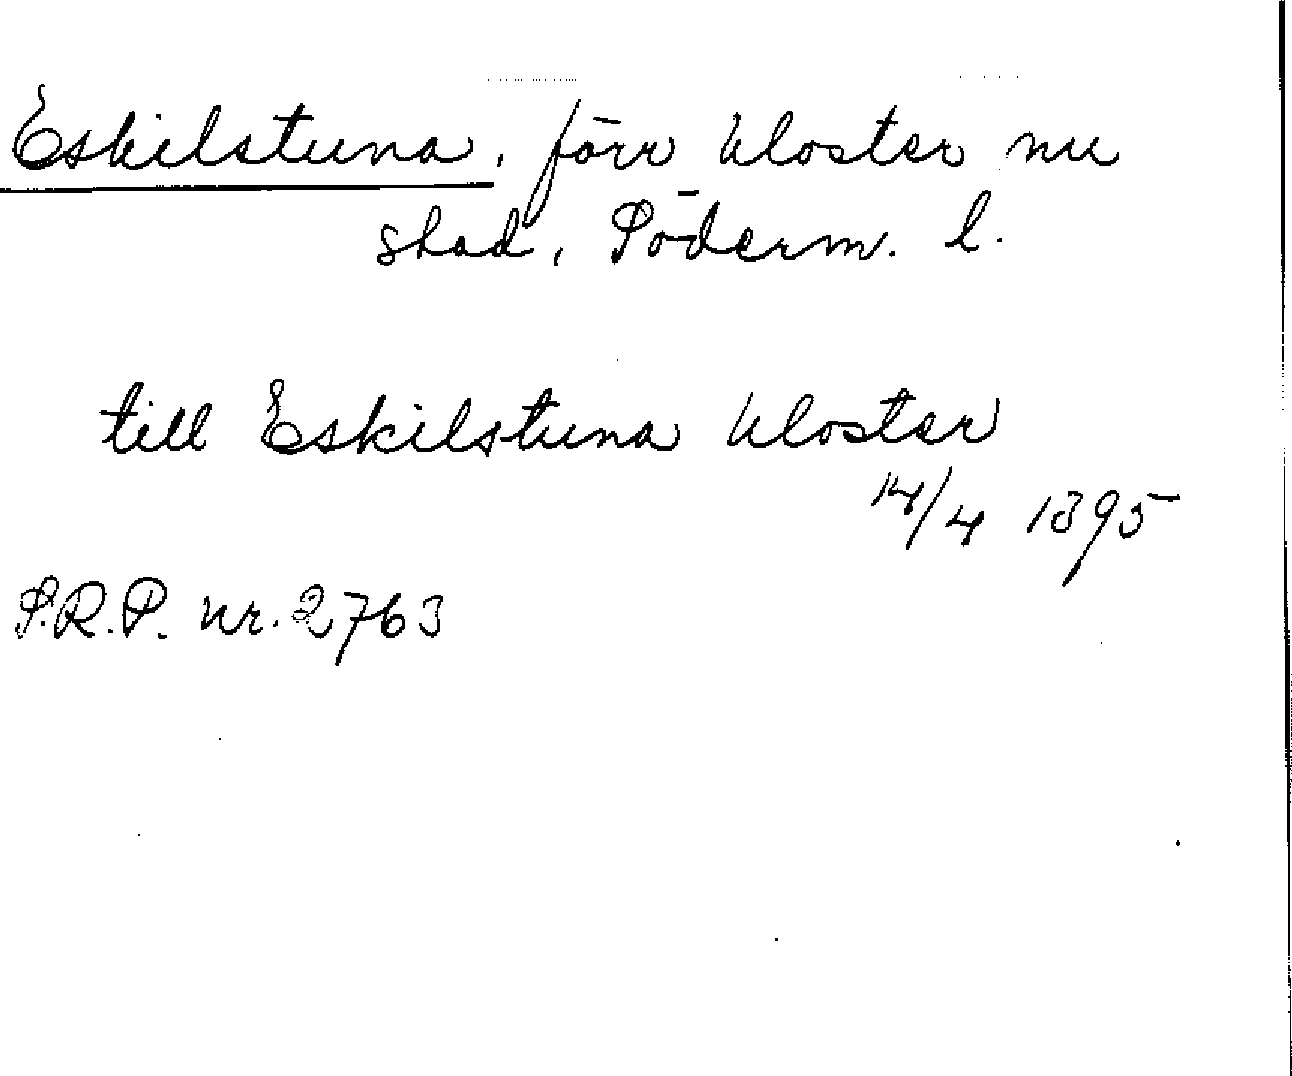 Eskilstuna, förr kloster nu
stad, Söderm. l.
till Eskilstuna kloster
14/4 1395
S.R.P. nr. 2763